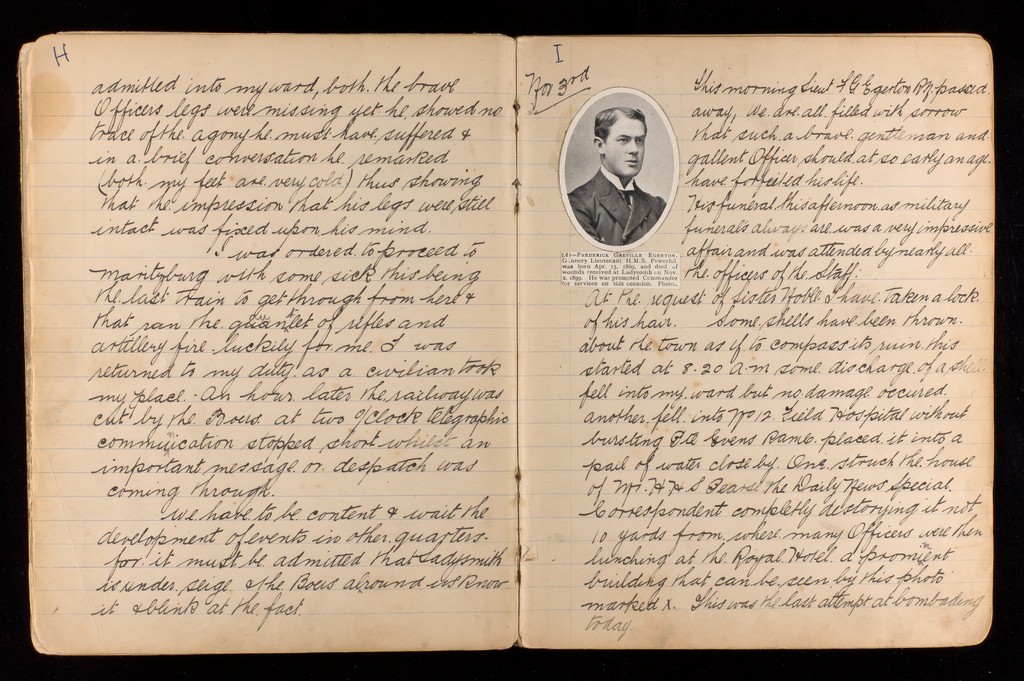 H
admitted into my ward, both the brave
Officers legs were missing yet he showed no
trace of the agony he must have suffered &
in a brief conversation he remarked
(both my feet are very cold) thus showing
that the impression that his legs were still
intact was fixed upon his mind.
I was ordered to proceed to
Maritzburg with some sick this being
the last train to get through from here &
that ran the of rifles and
artillery fire. luckily for me I was
returned to my duty as a civilian took
my place. An hour later the railway was
cut by the Boers. at two O/Clock telegraphic
communication stopped short whilst an
important message or despatch was
coming through.
We have to be content & wait the
development of events in other quarters.
for it must be admitted that Ladysmith
is under seige & the Boers around us know
it & blink at the fact.
I
Nov 3rd
This morning Lieut F G Egerton RN passed
away, We are all filled with sorrow
that such a brave gentleman and
gallent Officer should at so early an age
have forfeited his life.
His funeral this afternoon as military
funerals always are was a very impressive
affair and was attended by nearly all
the officers of the Staff.
(d)—FREDERICK GREVILLE EGERTON,
Gunnery Lieutenant H.M.S. Powerful,
was born Apr. 13, 1869, and died of
wounds received at Ladysmith on Nov.
2, 1899. He was promoted Commander
for services on this occasion. Photo,
At the request of Sister Noble I have taken a lock
of his hair. Some shells have been thrown
about the town as if to compass its ruin this
started at 8.20 A.m some discharge of a shell
fell into my ward but no damage occured.
another fell into No 12 Field Hospital without
bursting Pte Evens Ramc. placed it into a
pail of water close by. One struck the house
of Mr. H H S Pearse the Daily News Special
Correspondent completly destorying it not
10 yards from where many Officers were then
lunching at the Royal Hotel a prominent
building that can be seen by this photo
marked X. This was the last attempt at bombading
today